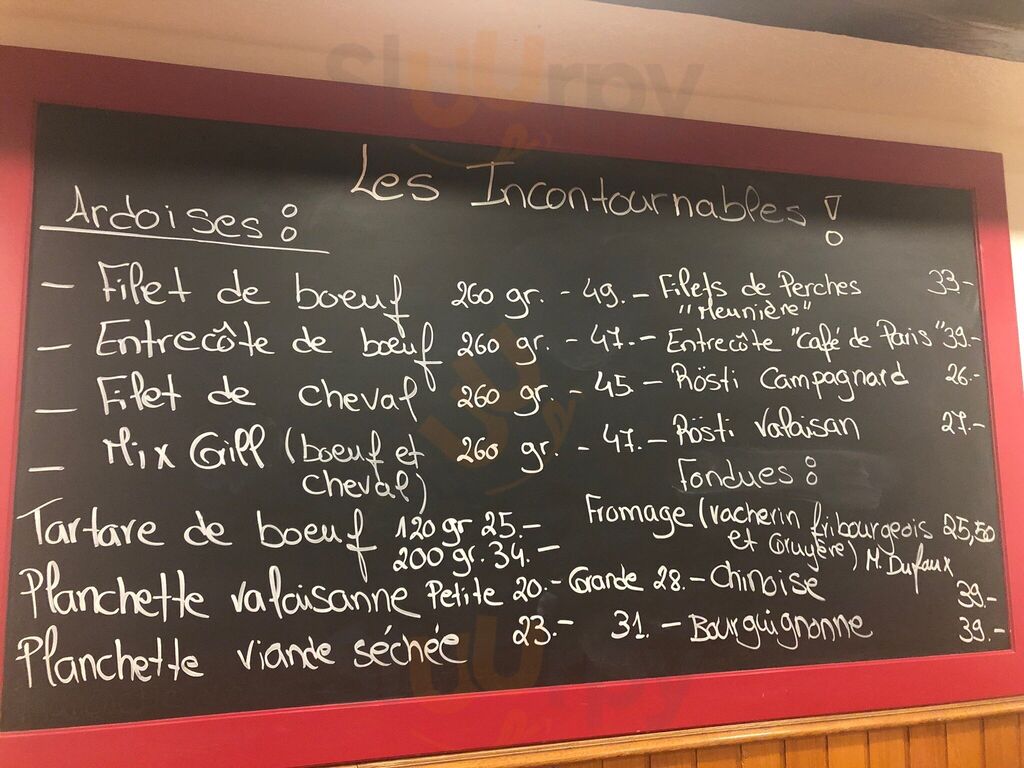 sluurpy
Les Incontournables !
Ardoises :
- Filet de boeuf 260 gr. - 49.-
- Entrecôte de boeuf 260 gr. - 47.-
- Filet de cheval 260 gr. - 45.-
- Mix Grill (boeuf et 260 gr. - 47.-
cheval)
Tartare de boeuf 120 gr 25.-
200 gr. 34.-
Planchette valaisanne Petite 20.- Grande 28.-
Planchette viande séchée 23.- 31.-
Filets de Perches 33.-
"Meunière"
Entrecôte "Café de Paris" 39.-
Rösti Campagnard 26.-
Rösti Valaisan 27.-
Fondues :
Fromage (vacherin fribourgeois 25,50
et Gruyère) M. Dufaux
Chinoise 39.-
Bourguignonne 39.-